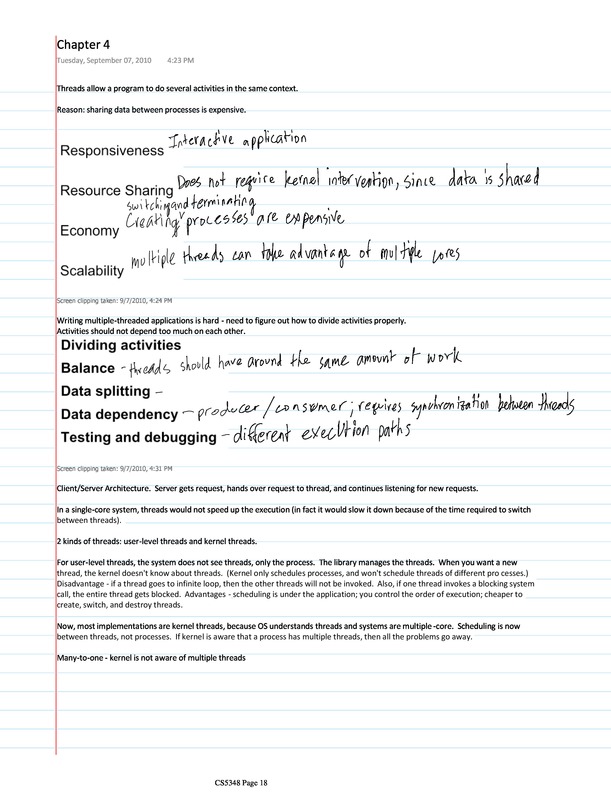 Chapter 4
Tuesday, September 07, 2010 4:23 PM
Threads allow a program to do several activities in the same context.
Reason: sharing data between processes is expensive.
Responsiveness Interactive application
Resource Sharing Does not require kernel intervention, since data is shared
switching and terminating
Economy Creating processes are expensive
Scalability multiple threads can take advantage of multiple cores
Screen clipping taken: 9/7/2010, 4:24 PM
Writing multiple-threaded applications is hard - need to figure out how to divide activities properly.
Activities should not depend too much on each other.
Dividing activities
Balance - threads should have around the same amount of work
Data splitting -
Data dependency - producer/consumer; requires synchronization between threads
Testing and debugging - different execution paths
Screen clipping taken: 9/7/2010, 4:31 PM
Client/Server Architecture. Server gets request, hands over request to thread, and continues listening for new requests.
In a single-core system, threads would not speed up the execution (in fact it would slow it down because of the time required to switch
between threads).
2 kinds of threads: user-level threads and kernel threads.
For user-level threads, the system does not see threads, only the process. The library manages the threads. When you want a new
thread, the kernel doesn't know about threads. (Kernel only schedules processes, and won't schedule threads of different pro cesses.)
Disadvantage - if a thread goes to infinite loop, then the other threads will not be invoked. Also, if one thread invokes a blocking system
call, the entire thread gets blocked. Advantages - scheduling is under the application; you control the order of execution; cheaper to
create, switch, and destroy threads.
Now, most implementations are kernel threads, because OS understands threads and systems are multiple -core. Scheduling is now
between threads, not processes. If kernel is aware that a process has multiple threads, then all the problems go away.
Many-to-one - kernel is not aware of multiple threads
CS5348 Page 18